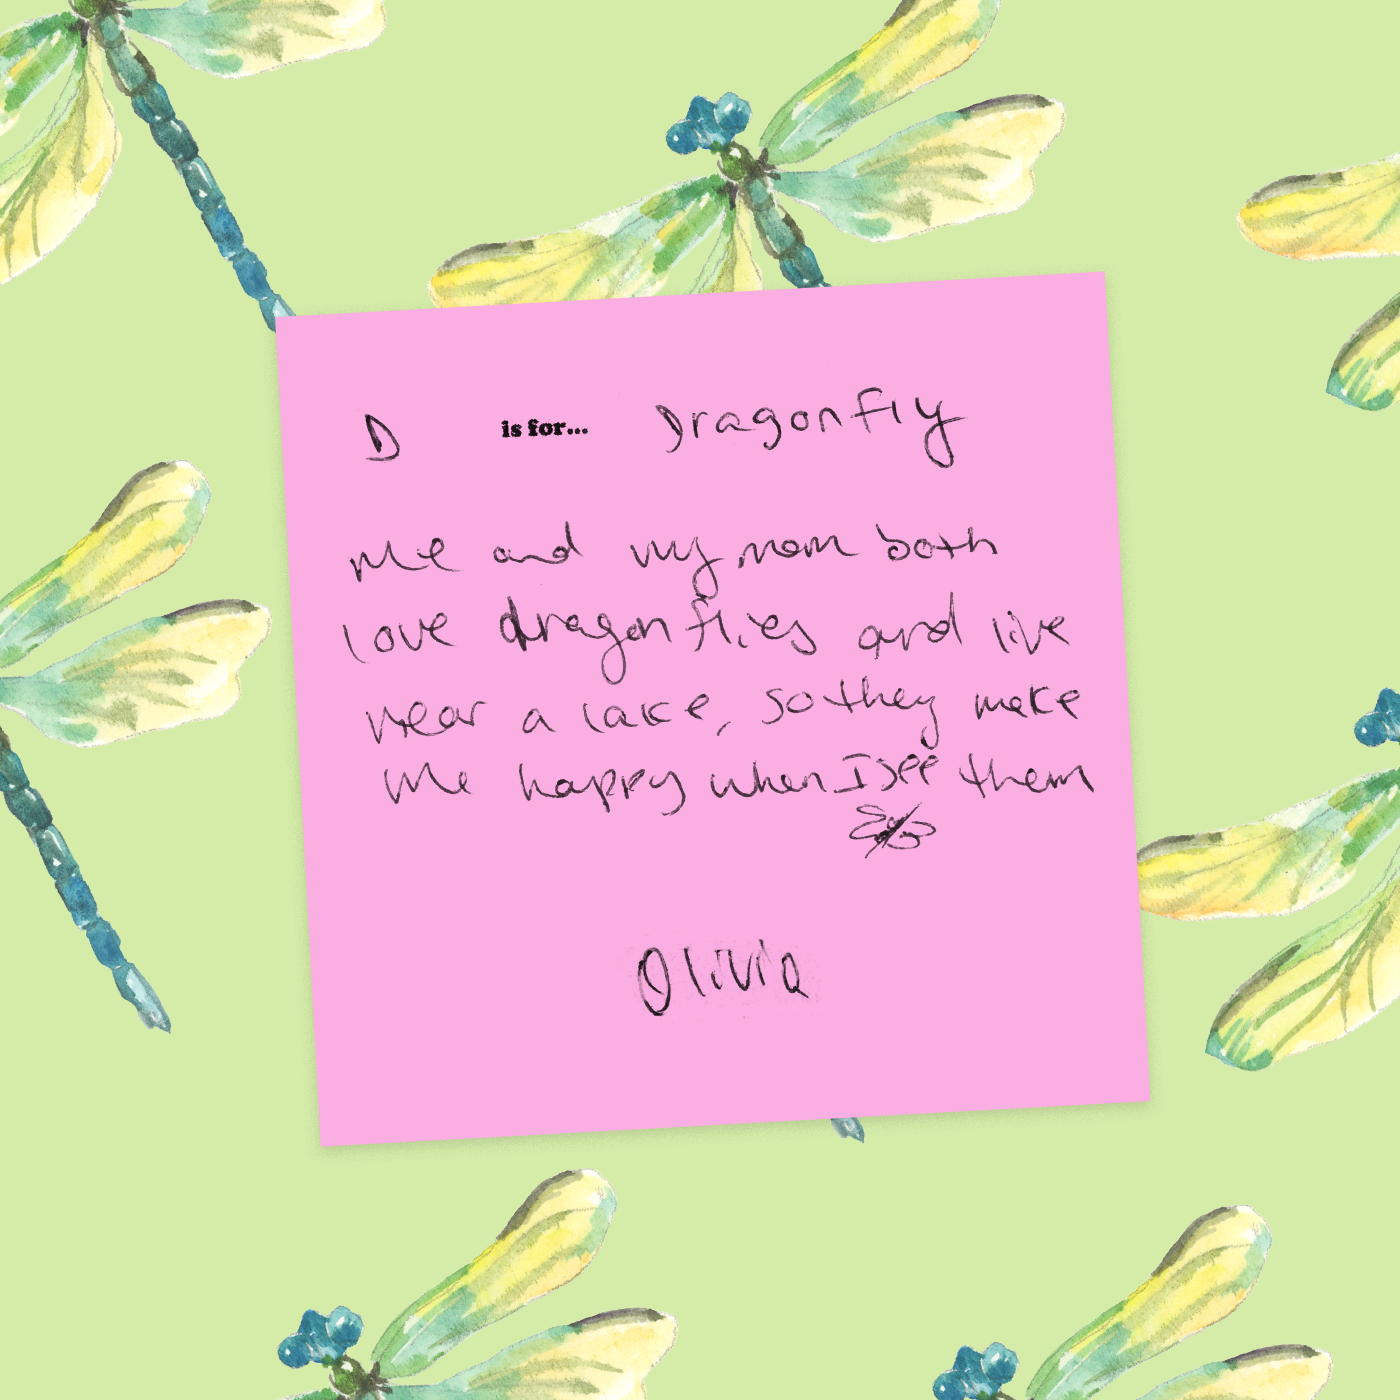 D is for... Dragonfly
me and my mom both
love dragonflies and live
near a lake, so they make
me happy when I see them
Olivia